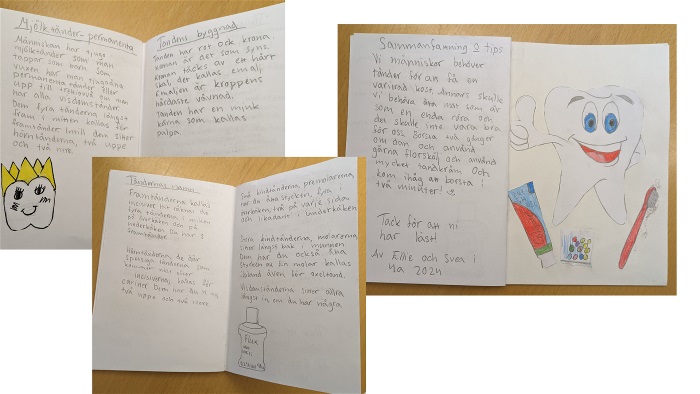 Mjölktänder-permanenta
Människan har tjugo
mjölktänder som man
tappar som barn. Som
vuxen har man tjugoåtta
permanenta tänder eller
upp till trettiotvå om man
har alla visdomständer.
De fyra tänderna längst
fram i
framtänder
hörntänderna, två uppe
och två nere.
Tandens byggnad
Tanden har rot och krona
kronan är det som syns.
Kronan täcks av ett hårt
skal det kallas emalj
Emaljen är kroppens
hårdaste vävnad.
Tanden har en mjuk
kärna som kallas
pulpa.
Tändernas namn
Framtänderna kallas
fyra tänderna i mitten
på överkäken och på
underkäken Du har 8
framtänder
Hörntänderna, de där
spetsiga tänderna som
kommer näst efter
incisiverna, kallas för
caniner. Dem har du
två uppe och två nere
Små kindtänderna, premolarerna,
har du åtta stycken, fyra i
överkäken, två på varje sida
och likadant i underkäken
Stora kindtänderna, molarerna,
sitter längst bak i munnen
Dem har du också åtta
stycken av. En molar kallas
ibland även för oxeltand.
Visdomständerna sitter allra
längst in om du har några
Flux
Sammanfattning & tips
Vi människor behöver
tänder för att få en
varierad kost. Annars skulle
vi behöva äta mat som är
som en enda röra och
det skulle inte vara bra
för oss. Borsta två gånger
om dan och använd
gärna florskölj och använd
mycket tandkräm. Och
kom ihåg att borsta i
två minuter!
Tack för att ni
har läst!
Av Ellie och Svea i
4a 2024